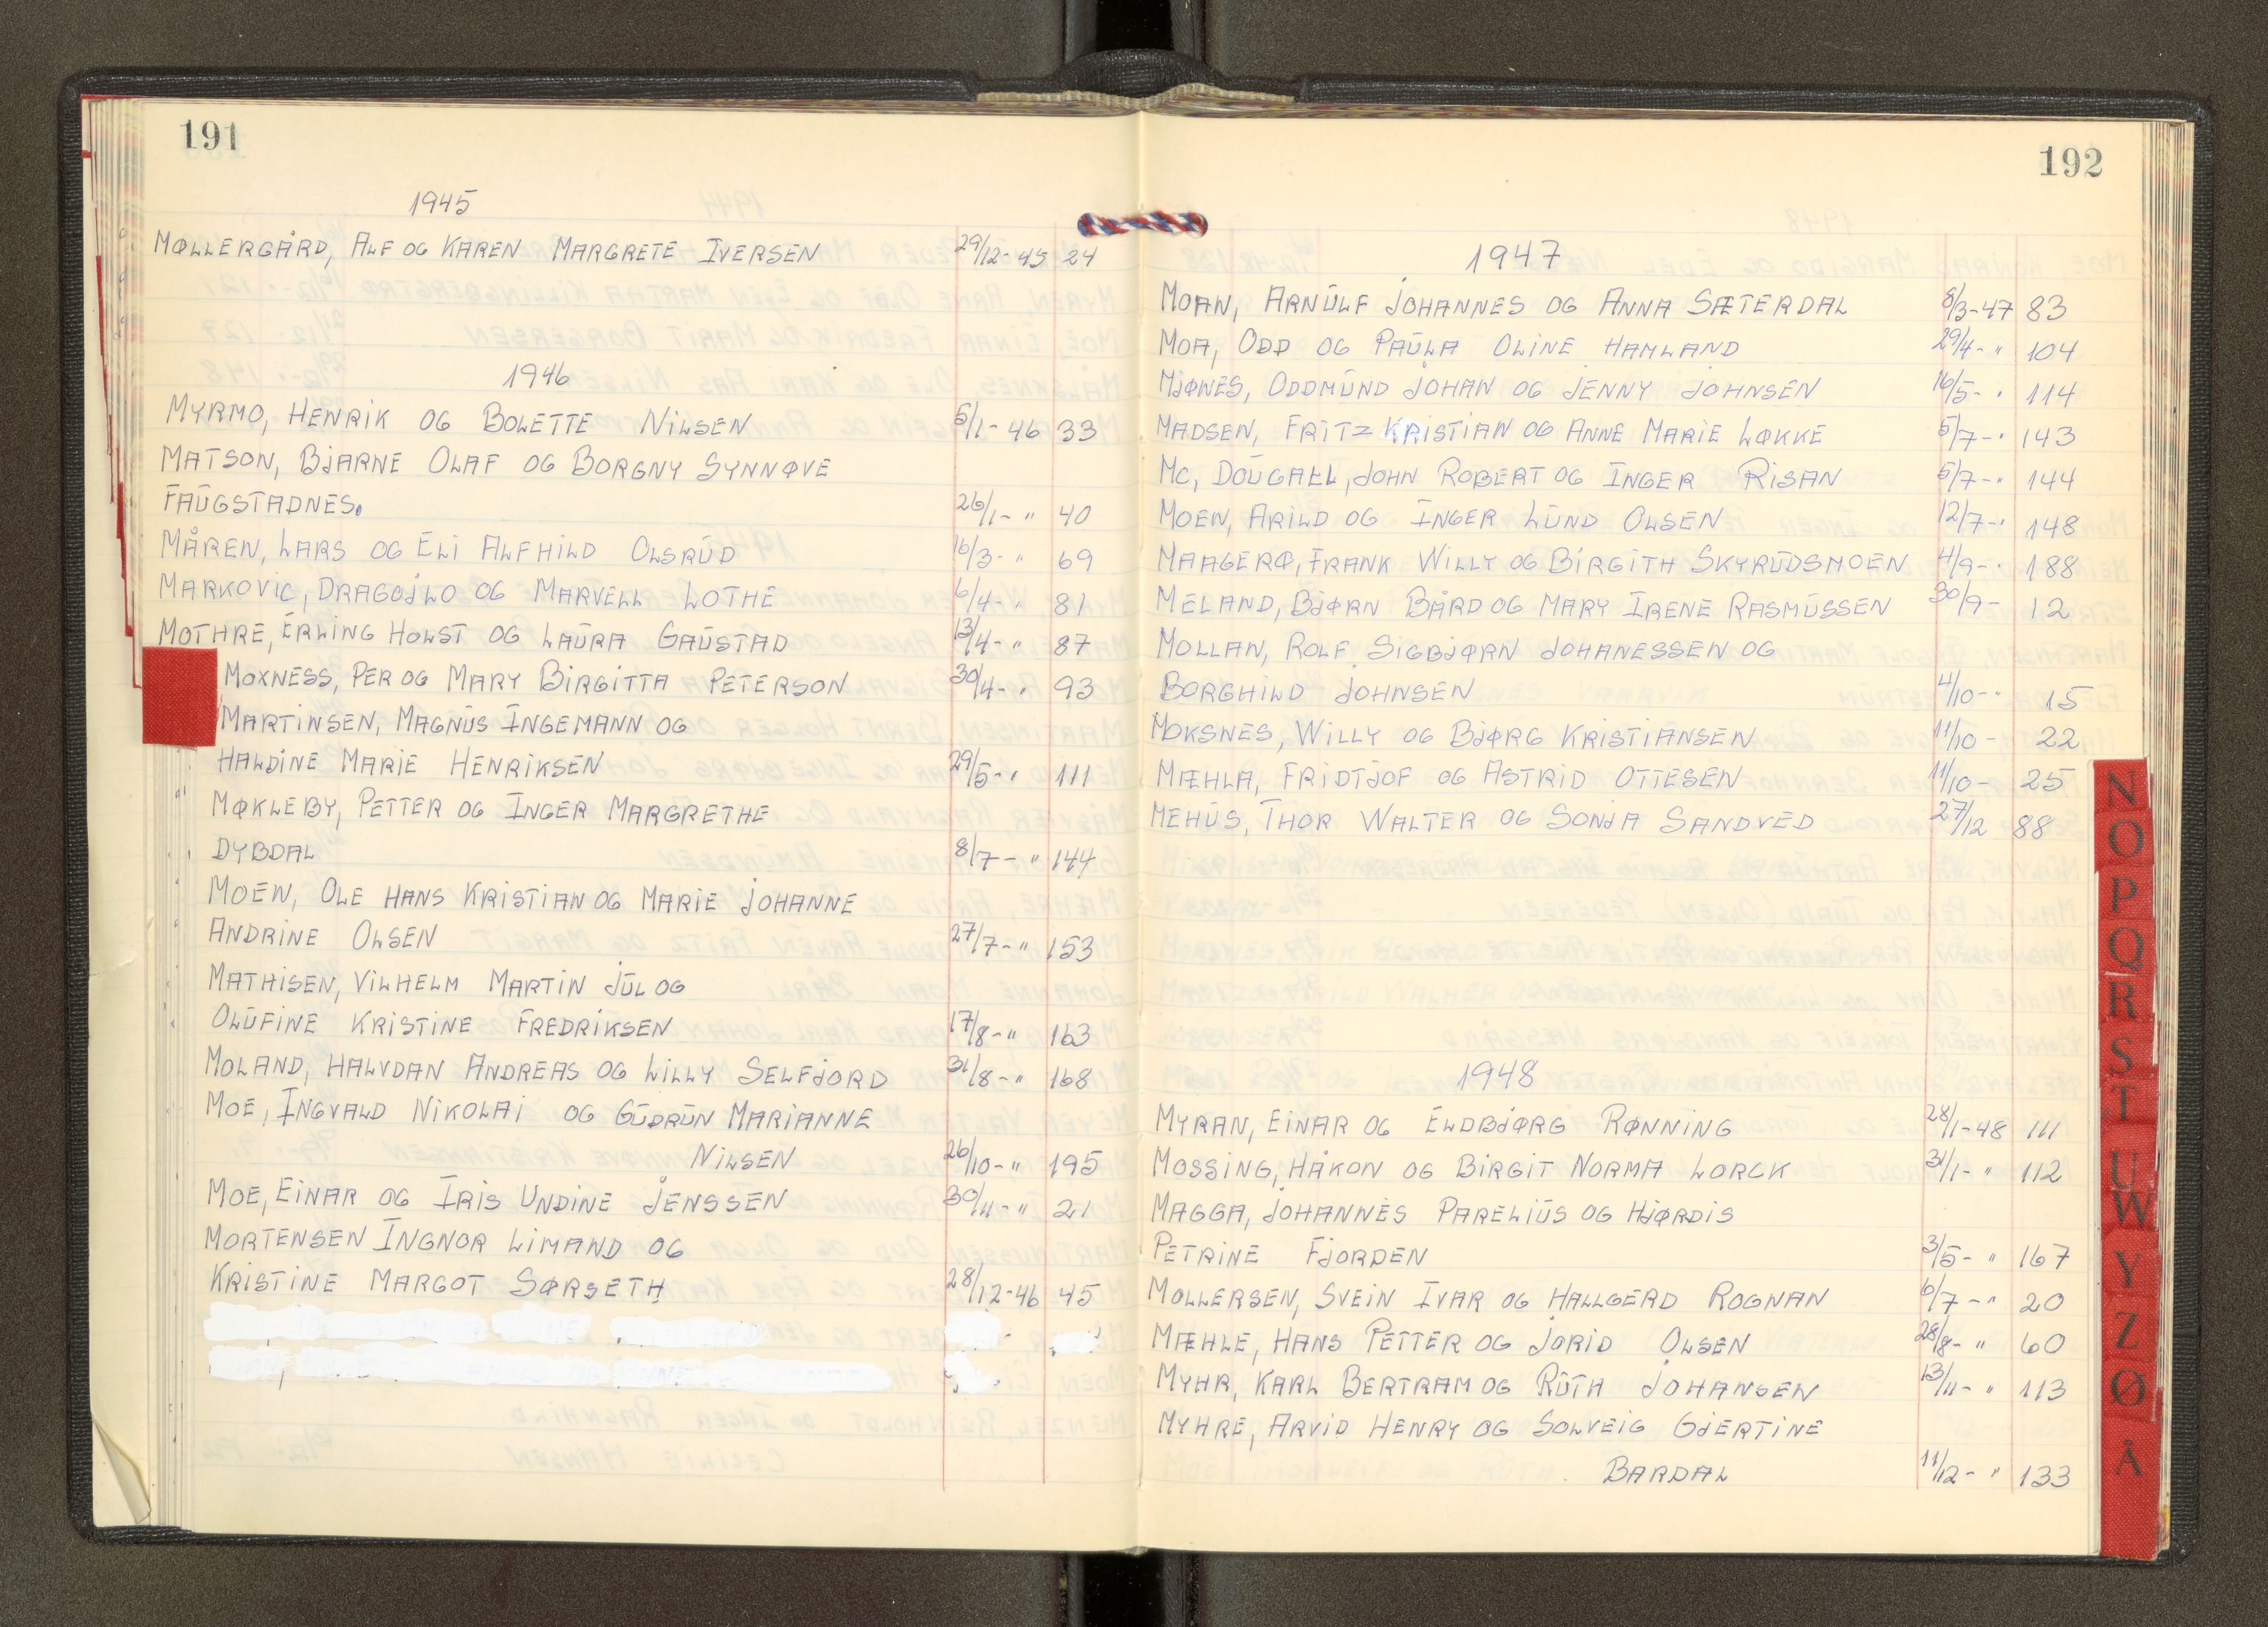 191
1945
MØLLERGÅRD, ALF OG KAREN MARGRETE IVERSEN 29/12-45 24
1946
MYRMO, HENRIK OG BOLETTE NILSEN 5/1-46 33
MATSON, BJARNE OLAF OG BORGNY SYNNØVE
FAUGSTADNES. 26/1- " 40
MÅREN, LARS OG ELI ALFHILD OLSRUD 16/3- " 69
MARKOVIC, DRAGOJLO OG MARVELL LOTHE 6/4- " 81
MOTHRE, ERLING HOLST OG LAURA GAUSTAD 13/4- " 87
MOXNESS, PER OG MARY BIRGITTA PETERSON 30/4- " 93
MARTINSEN, MAGNUS INGEMANN OG
HALDINE MARIE HENRIKSEN 29/5- " 111
MØKLEBY, PETTER OG INGER MARGRETHE
DYBDAL 8/7- " 144
MOEN, OLE HANS KRISTIAN OG MARIE JOHANNE
ANDRINE OLSEN 27/7- " 153
MATHISEN, VILHELM MARTIN JUL OG
OLUFINE KRISTINE FREDRIKSEN 17/8- " 163
MOLAND, HALVDAN ANDREAS OG LILLY SELFJORD 31/8- " 168
MOE, INGVALD NIKOLAI OG GUDRUN MARIANNE
NILSEN 26/10- " 195
MOE, EINAR OG IRIS UNDINE JENSSEN 30/11- " 21
MORTENSEN INGNOR LIMAND OG
KRISTINE MARGOT SØRSETH 28/12-46 45
192
1947
MOAN, ARNULF JOHANNES OG ANNA SÆTERDAL 8/3-47 83
MOA, ODD OG PAULA OLINE HAMLAND 29/4- " 104
MJØNES, ODDMUND JOHAN OG JENNY JOHNSEN 16/5- " 114
MADSEN, FRITZ KRISTIAN OG ANNE MARIE LØKKE 5/7- " 143
MC, DOUGALL, JOHN ROBERT OG INGER RISAN 5/7- " 144
MOEN, ARILD OG INGER LUND OLSEN 12/7- " 148
MAAGERØ, FRANK WILLY OG BIRGITH SKYRUDSMOEN 4/9- " 188
MELAND, BJØRN BÅRD OG MARY IRENE RASMUSSEN 30/9- 12
MOLLAN, ROLF SIGBJØRN JOHANESSEN OG
BORGHILD JOHNSEN 4/10- " 15
MOKSNES, WILLY OG BJØRG KRISTIANSEN 11/10- 22
MÆHLA, FRIDTJOF OG ASTRID OTTESEN 11/10- 25
MEHUS, THOR WALTER OG SONJA SANDVED 27/12 88
1948
MYRAN, EINAR OG ELDBJØRG RØNNING 28/1-48 111
MOSSING, HÅKON OG BIRGIT NORMA LORCK 31/1- " 112
MAGGA, JOHANNES PARELIUS OG HJØRDIS
PETRINE FJORDEN 3/5- " 167
MOLLERSEN, SVEIN IVAR OG HALLGERD ROGNAN 6/7- " 20
MÆHLE, HANS PETTER OG JORID OLSEN 28/8- " 60
MYHR, KARL BERTRAM OG RUTH JOHANSEN 13/11- " 113
MYHRE, ARVID HENRY OG SOLVEIG GJERTINE
BARDAL 11/12- " 133
N
O
P
Q
R
S
T
U
W
Y
Z
Ø
Å